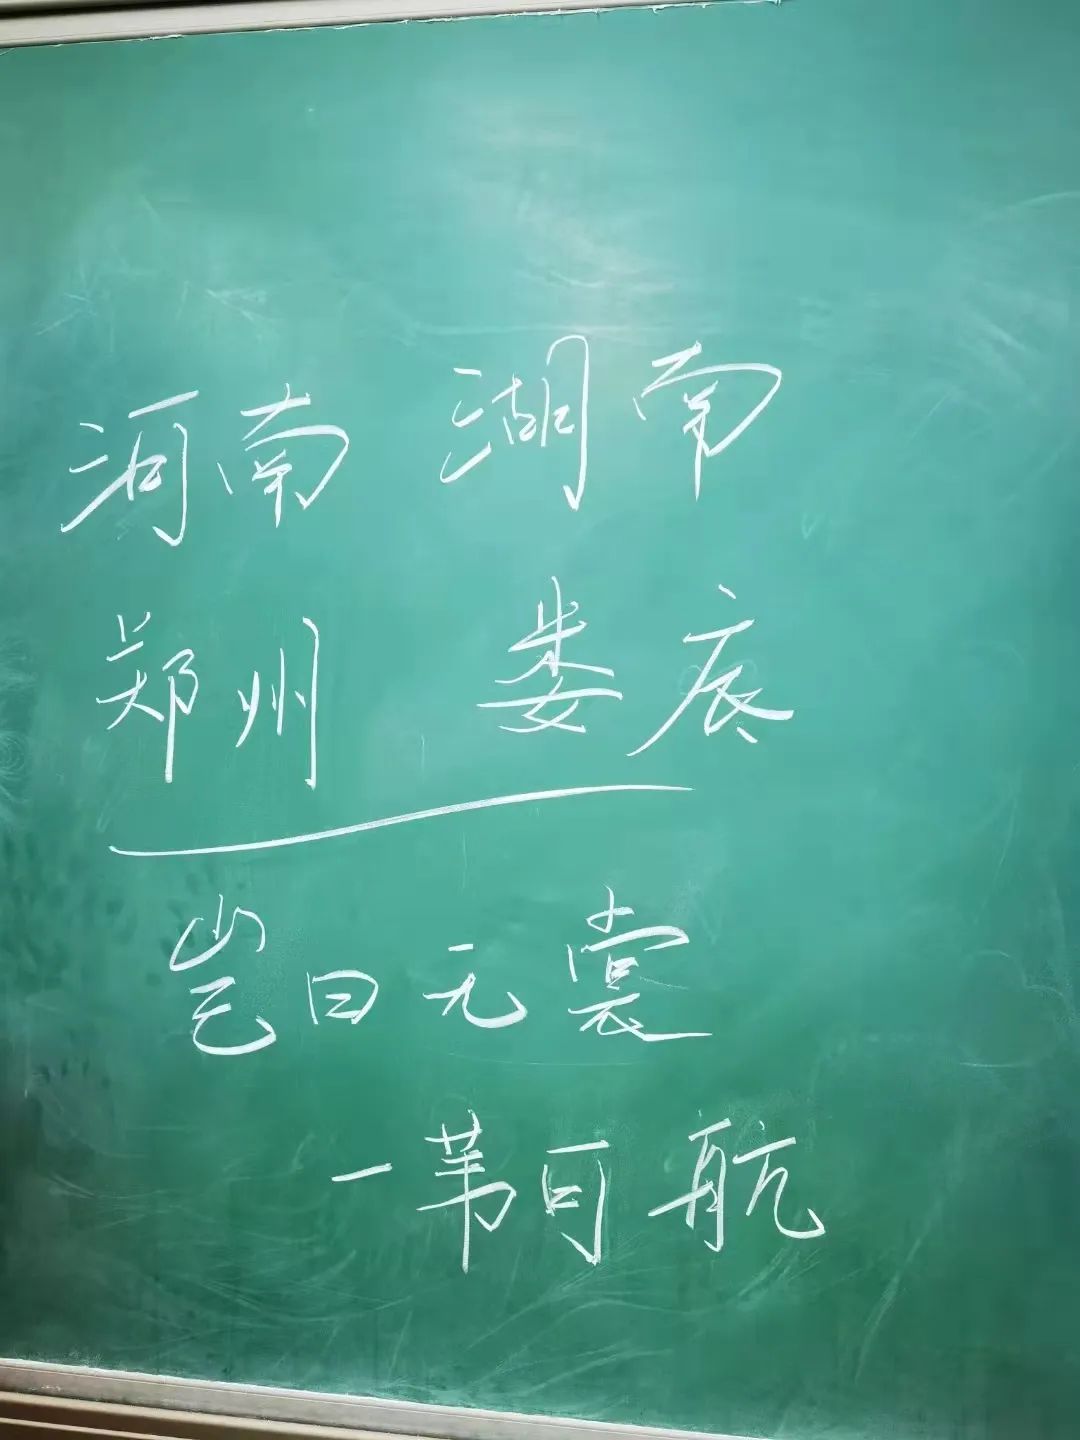 河南 湖南
郑州 娄底
岂曰无裳
一苇可航